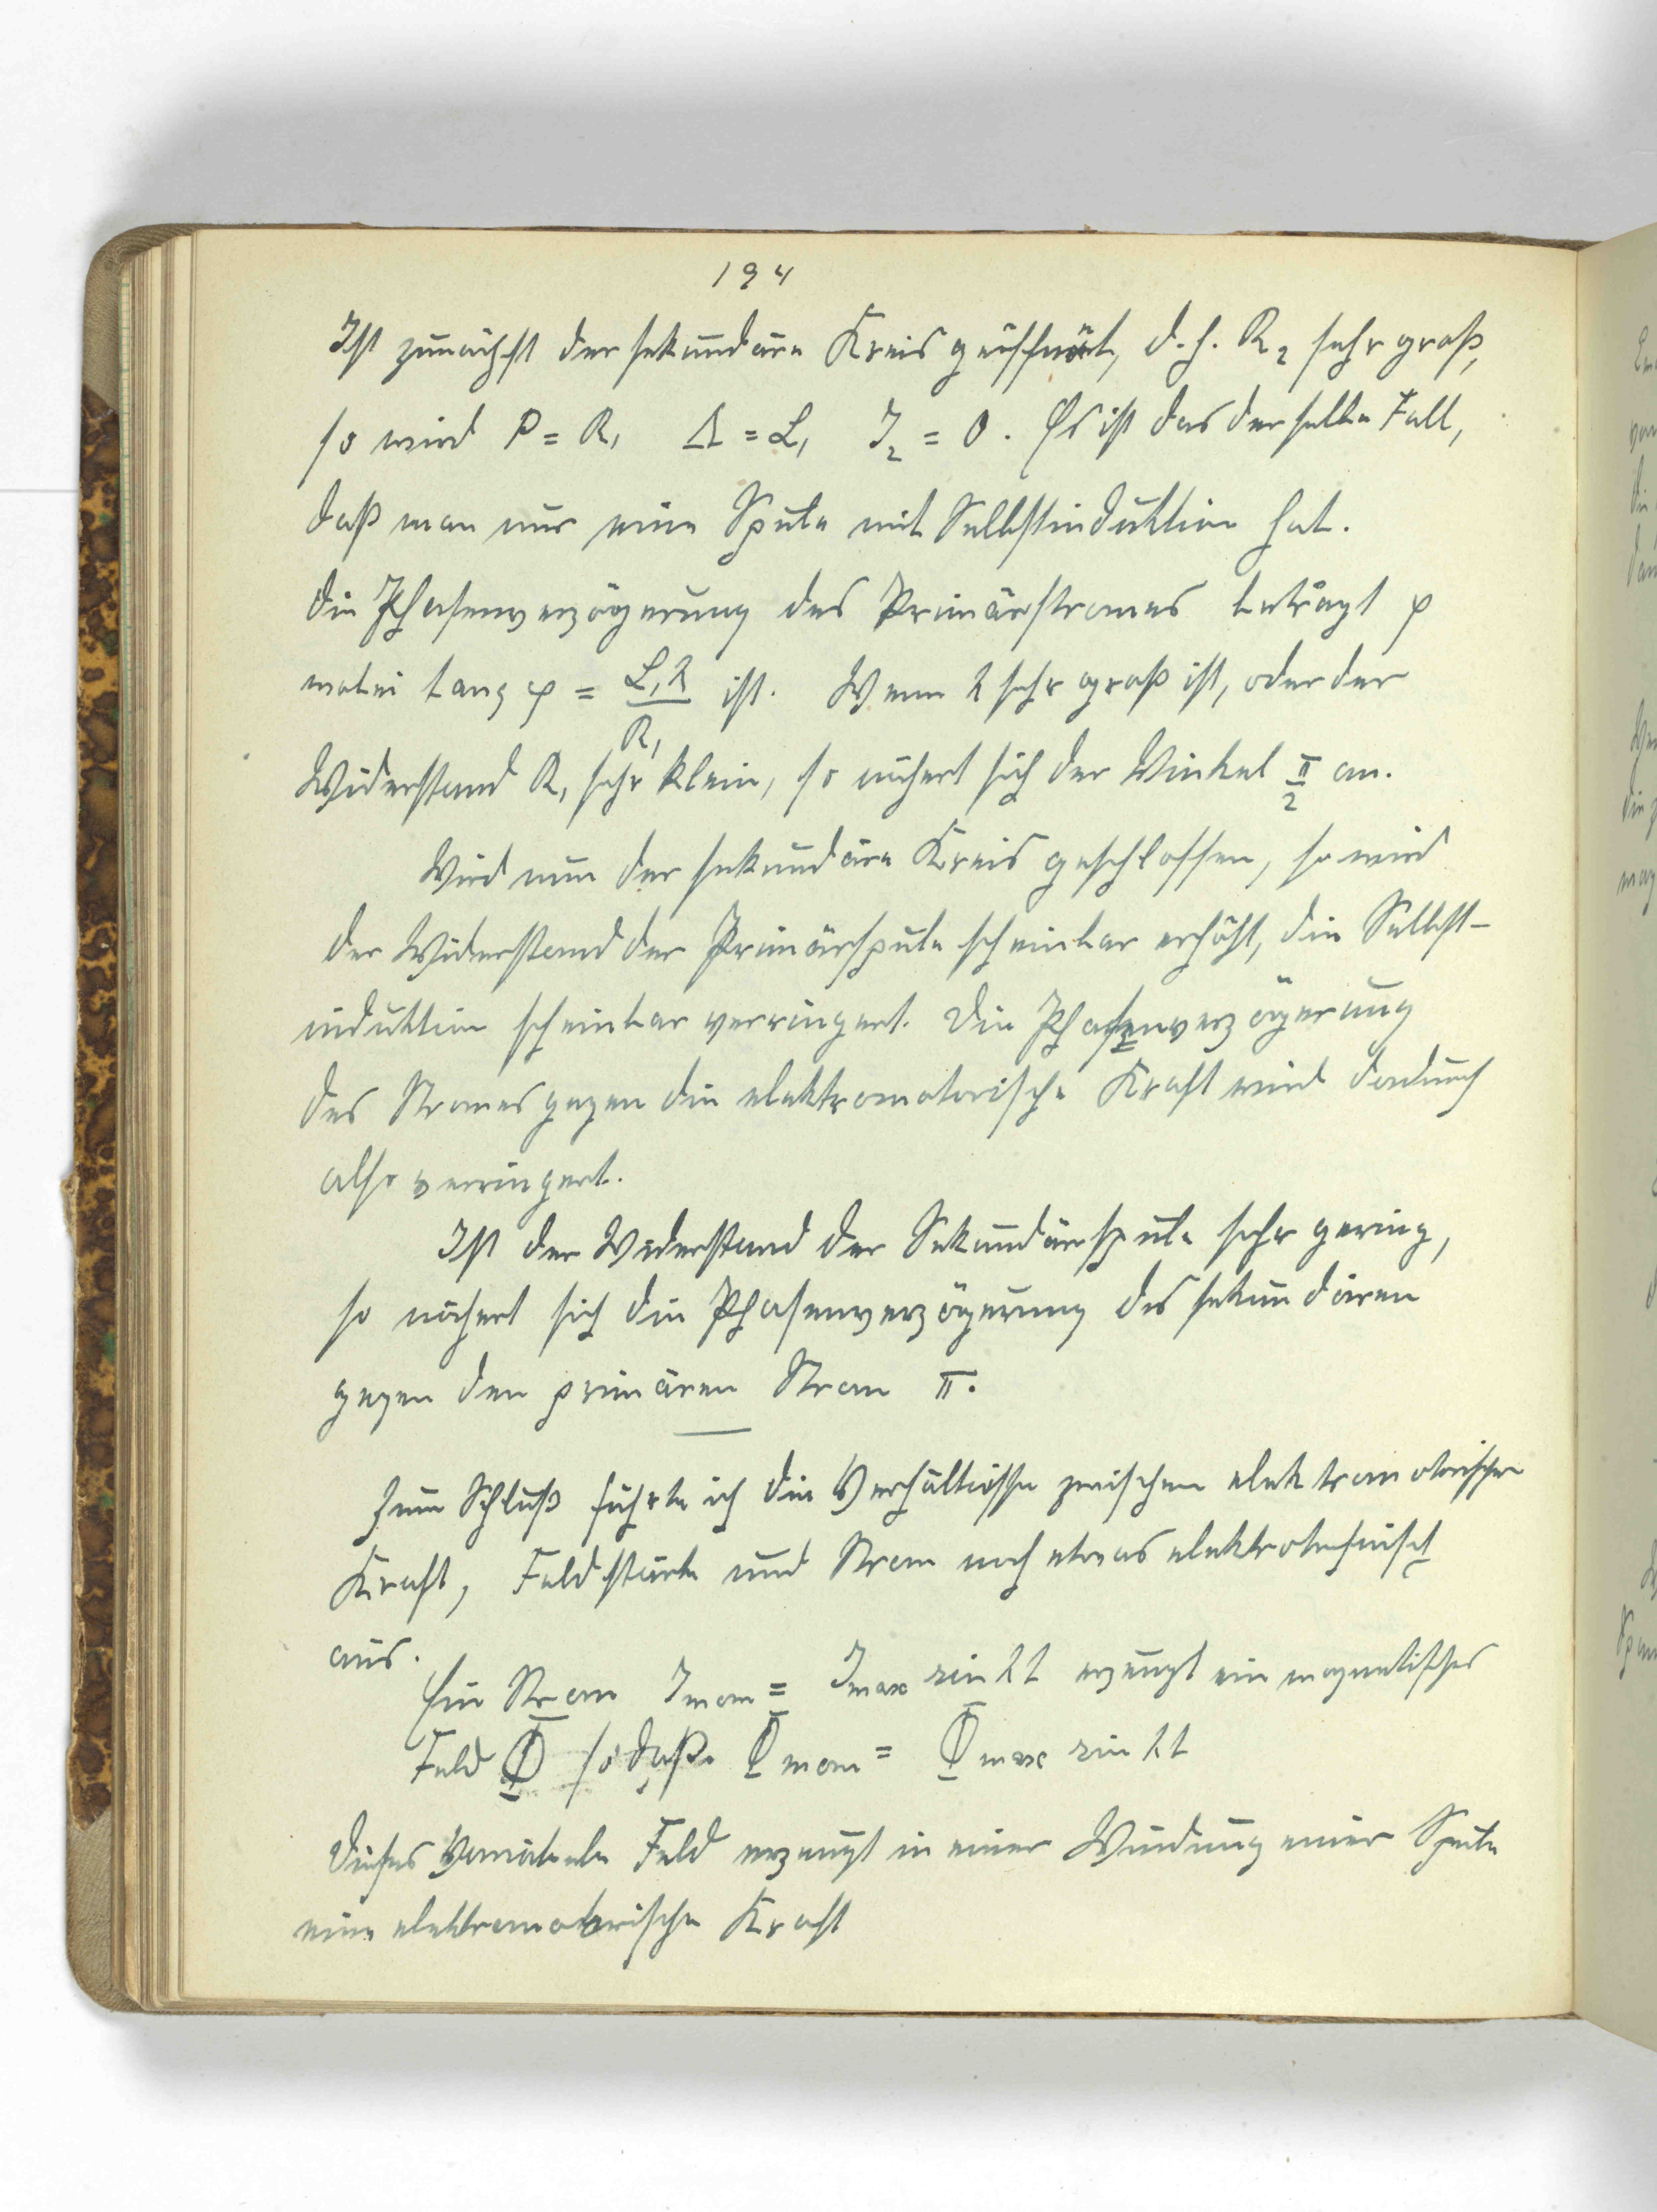 194
Ist zunächst der sekundäre Kreis geöffnet, d. h. R₂ sehr groß,
so wird P = R₁ Λ = L₁ J₂ = 0. Es ist das derselbe Fall,
daß man nur eine Spule mit Selbstinduktion hat.
Die Phasenverzögerung des Primärstromes beträgt φ
wobei tang φ = L₁λ/R₁ ist. Wenn λ sehr groß ist, oder der
Widerstand R₁ sehr klein, so nähert sich der Winkel π/2 an.
Wird nun der sekundäre Kreis geschlossen, so wird
der Widerstand der Primärspule scheinbar erhöht, die Selbst-
induktion scheinbar verringert. Die Phasenverzögerung
des Stromes gegen die elektromotorische Kraft wird dadurch
also verringert.
Ist der Widerstand der Sekundärspule sehr gering,
so nähert sich die Phasenverzögerung des sekundären
gegen den primären Strom π.
Zum Schluß führte ich die Verhältnisse zwischen elektromotorischer
Kraft, Feldstärke und Strom noch etwas elektrotechnisch
aus.
Ein Strom Jmom = Jmax sin λt erzeugt ein magnetisches
Feld Φ so daß Φmom = Φmax sin λt
Dieses variabele Feld erzeugt in einer Windung einer Spule
eine elektromotorische Kraft